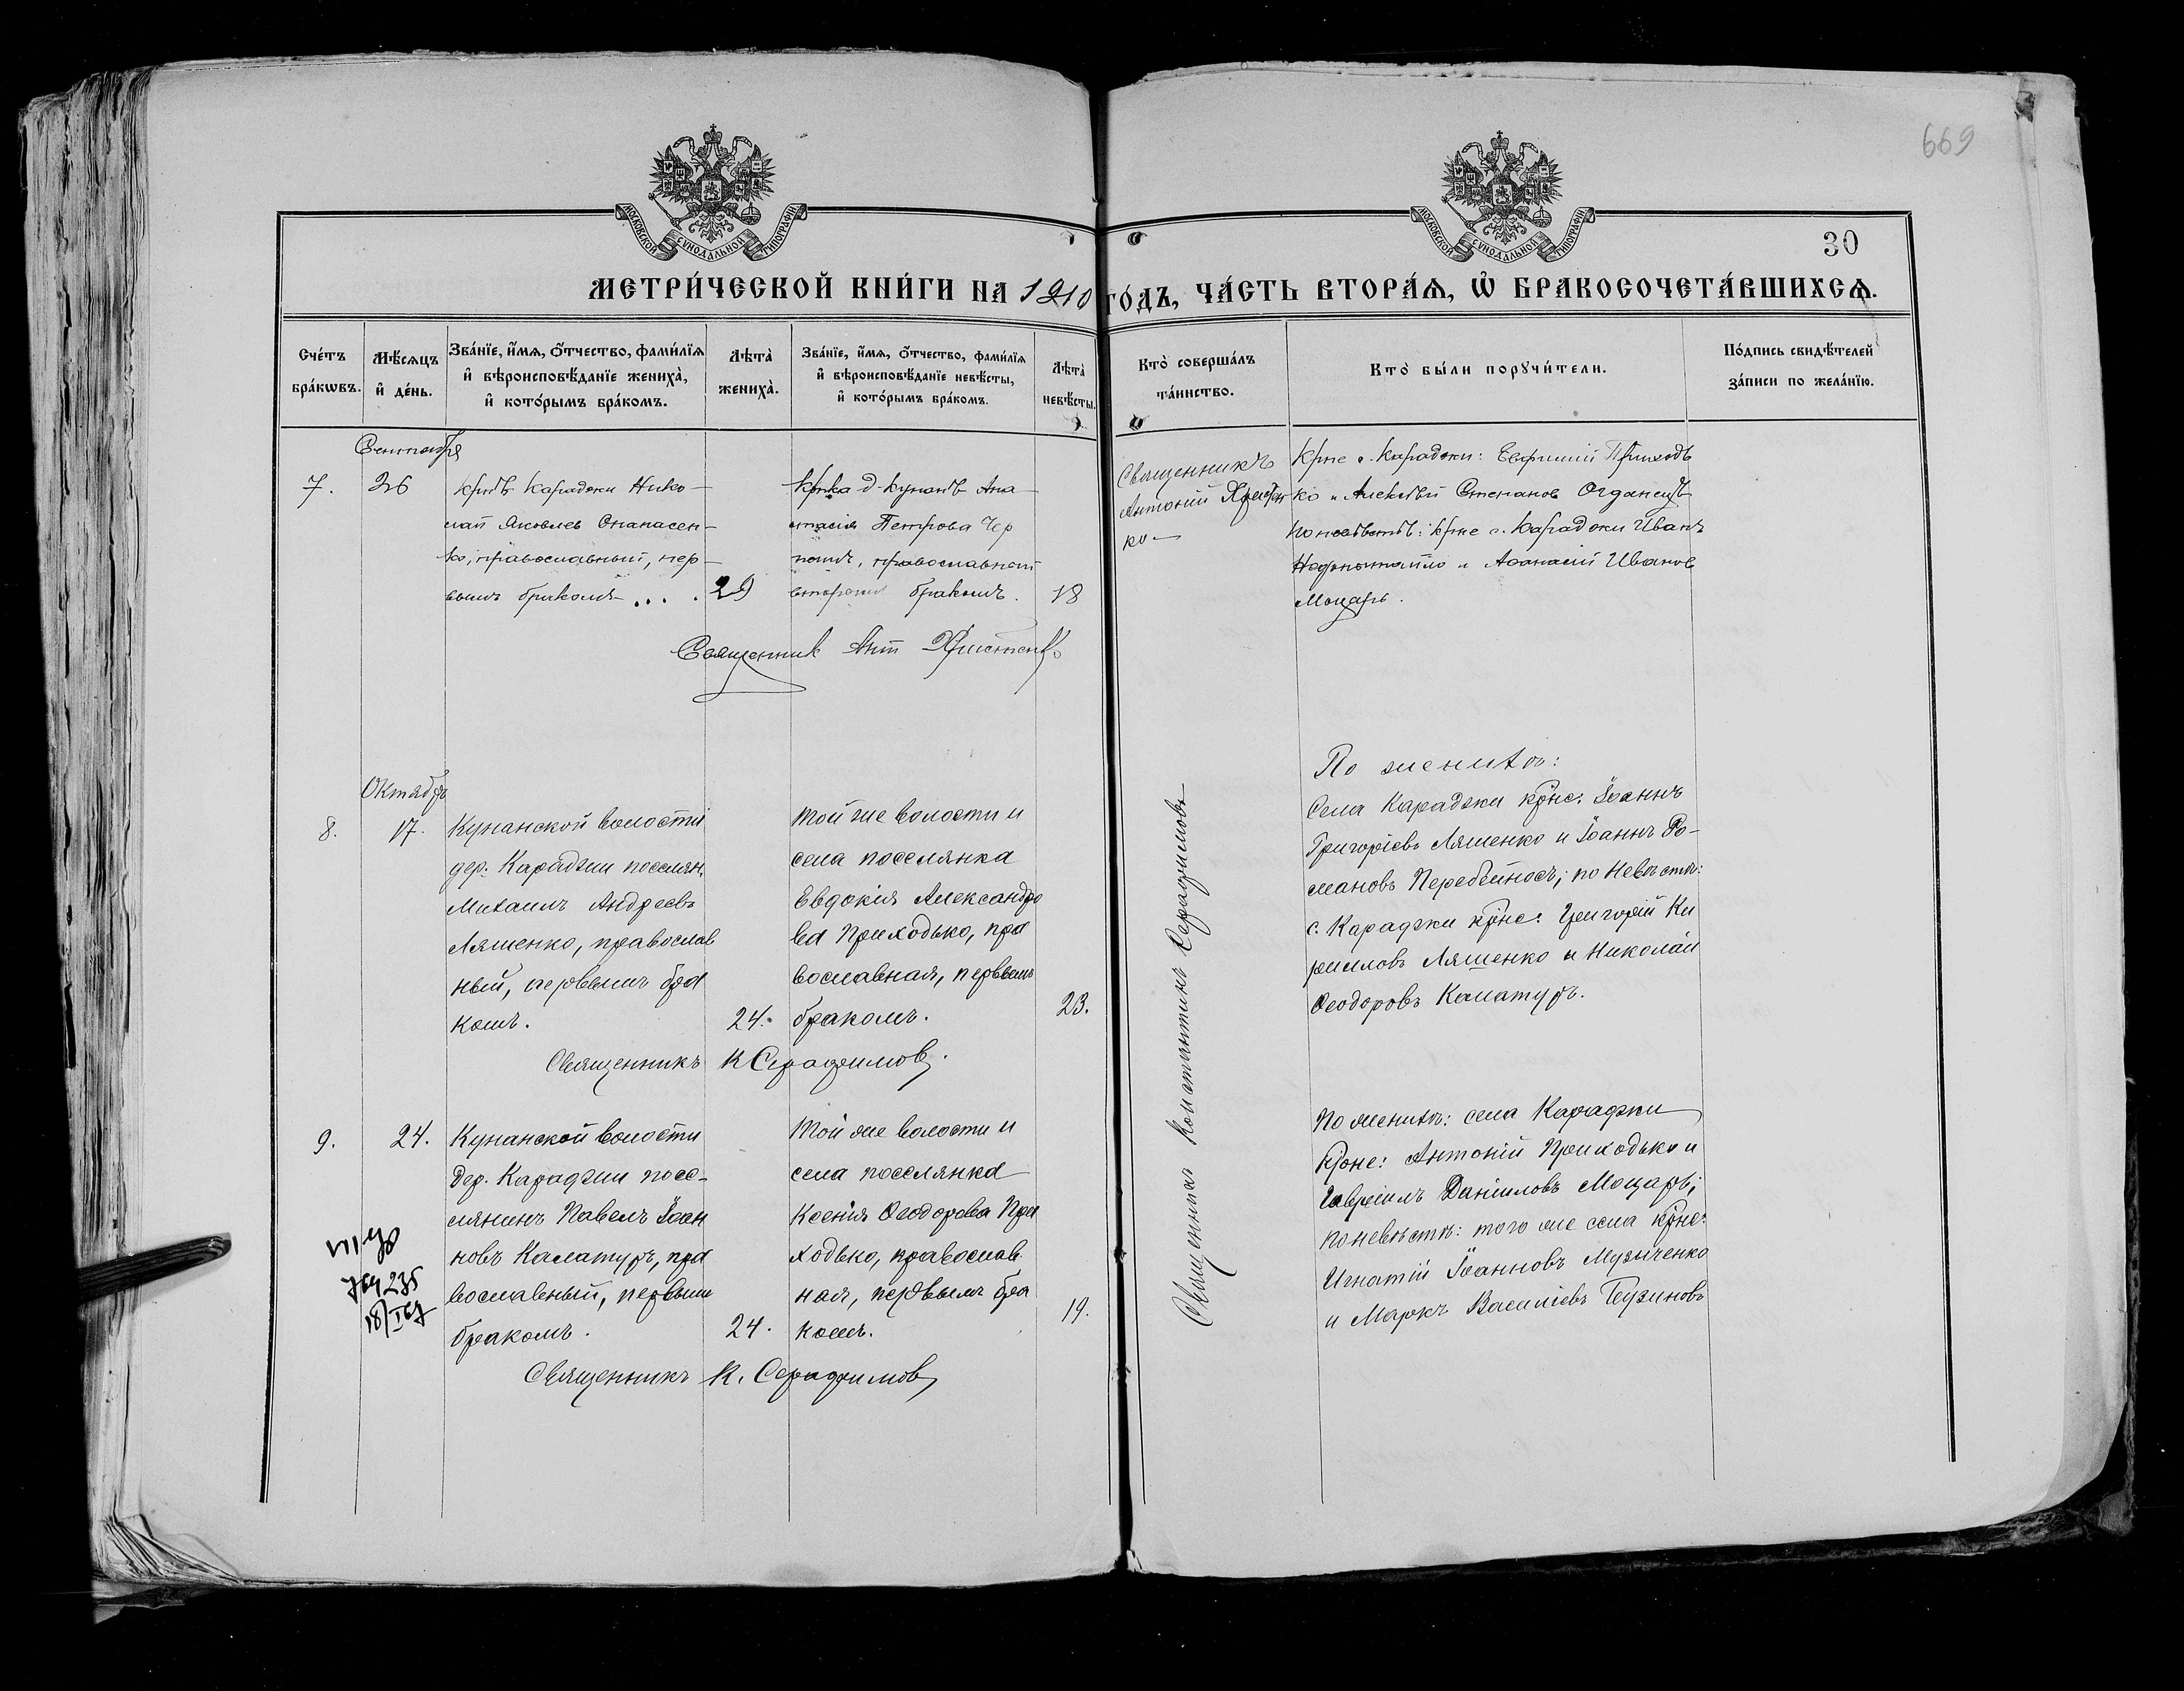 669
МОСКОВСКОЙ СѴНОДАЛЬНОЙ ТИПОГРАФІИ
МОСКОВСКОЙ СѴНОДАЛЬНОЙ ТИПОГРАФІИ
30
МЕТРИ́ЧЕСКОЙ КНИ́ГИ НА 1910 ГО́ДЪ, ЧА́СТЬ ВТОРА́Ѧ, Ѡ҆ БРАКОСОЧЕТА́ВШИХСѦ.
Сче́тъ бра́кѡвъ.
Мѣ́сѧцъ и҆ де́нь.
Зва́нїе, и҆́мѧ, ѻ҆́тчество, фами́лїѧ и҆ вѣроисповѣ́данїе жениха̀, и҆ кото́рымъ бра́комъ.
Лѣта̀ жениха̀.
Зва́нїе, и҆́мѧ, ѻ҆́тчество, фами́лїѧ и҆ вѣроисповѣ́данїе невѣ́сты, и҆ кото́рымъ бра́комъ.
Лѣта̀ невѣ́сты.
Кто̀ соверша́лъ та́инство.
Кто̀ бы́ли порꙋчи́тели.
По́дпись свидѣ́телей за́писи по жела́нїю.
Сентября
7.
26
Крнъ Караджи Нико-
лай Яковлев Опанасен-
ко, православный, пер-
вымъ бракомъ . . . .
29
Крнка д. Кунанъ Ана-
стасія Петрова Чер
православной
вторымъ бракомъ.
18
Священникъ
Антоній Христен
ко
Крне с. Караджи: Евфимій Приходь
ко и Алексѣй Степанов
по невѣстѣ: Крне с. Караджи Иванъ
и Аѳанасій Иванов
Моцарь.
Священник Ант Христенко
Октябрь
8.
17.
Кунанской волости
дер. Караджи поселян.
Михаилъ Андреевъ
Ляшенко, православ
ный, первымъ бра
комъ.
24.
Той же волости и
села поселянка
Евдокія Александро
ва Приходько, пра
вославная, первымъ
бракомъ.
23.
Священникъ Константинъ Серафимовъ
По женихѣ:
Села Караджи крне: Іоаннъ
Григоріевъ Ляшенко и Іоаннъ Ро-
мановъ Перебейносъ; по невѣстѣ:
с. Караджи крне: Григорій Ки
рилловъ Ляшенко и Николай
Ѳеодоровъ Калатуръ.
Священникъ К Серафимовъ.
9.
24.
Кунанской волости
дер. Караджи посе-
лянинъ Павелъ Іоан
новъ Калатуръ, пра
вославный, первымъ
бракомъ.
24.
Той же волости и
села поселянка
Ксенія Ѳеодорова При
ходько, православ
ная, первымъ бра
комъ.
19.
По женихѣ: села Караджи
крне: Антоній Приходько и
Гавріилъ Даніиловъ Моцарь;
по невѣстѣ: того же села крне:
Игнатій Іоанновъ Музыченко
и Маркъ Василіевъ Бузиновъ
Священникъ К. Серафимовъ